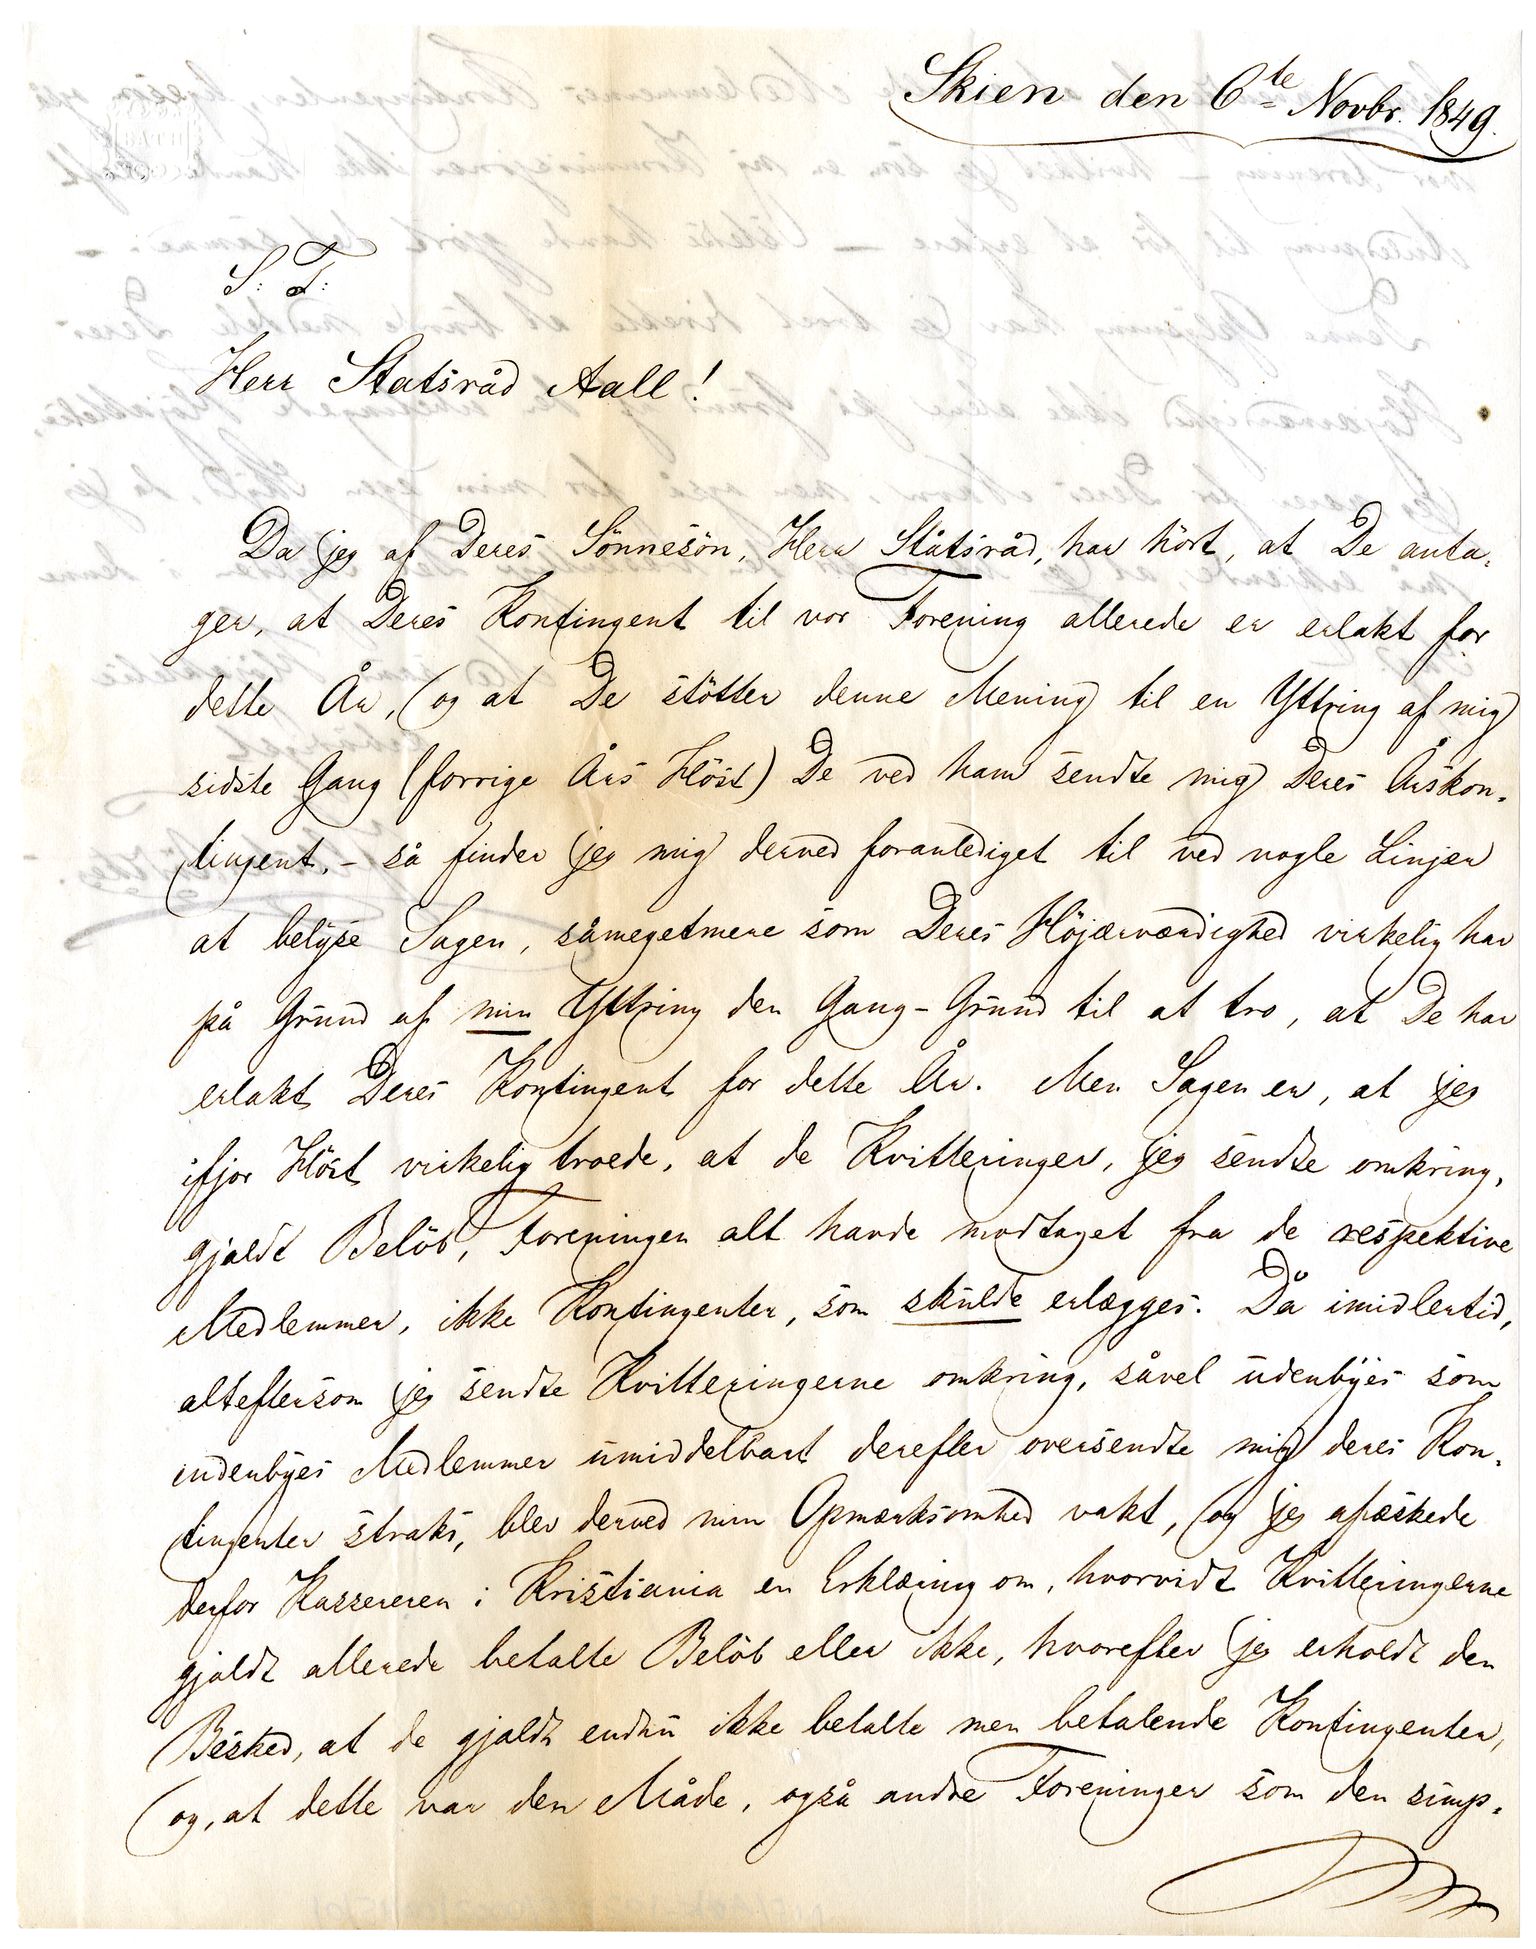 Skien den 6te Novbr. 1849.
S. T.
Herr Statsråd Aall!
Da jeg af Deres Sönnesön, Herr Ståtsråd, har hört, at De anta-
ger, at Deres Kontingent til vor Forening allerede er erlakt for
dette År, og at De stötter denne Mening til en Yttring af mig
sidste Gang (forrige Års Höst) De ved ham sendte mig Deres Årskon-
tingent, – så finder jeg mig derved foranlediget til ved nogle Linjer
at belyse Sagen, såmegetmere som Deres Höjærværdighed virkelig har
på Grund af min Yttring den Gang – Grund til at tro, at De har
erlakt Deres Kontingent for dette År. Men Sagen er, at jeg
ifjor Höst virkelig troede, at de Kvitteringer, jeg sendte omkring,
gjaldt Belöb, Foreningen alt havde modtaget fra de respektive
Medlemmer, ikke Kontingenter, som skulde erlægges. Då imidlertid,
alteftersom jeg sendte Kvitteringerne omkring, såvel udenbyes som
indenbyes Medlemmer umiddelbart derefter oversendte mig deres Kon-
tingenter straks, blev derved min Opmærksomhed vakt, og jeg afæskede
derfor Kassereren i Kristiania en Erklæring om, hvorvidt Kvitteringerne
gjaldt allerede betalte Belöb eller ikke, hvorefter jeg erholdt den
Besked, at de gjaldt endnu ikke betalte men betalende Kontingenter,
og, at dette var den Måde, også andre Foreninger som den simp-